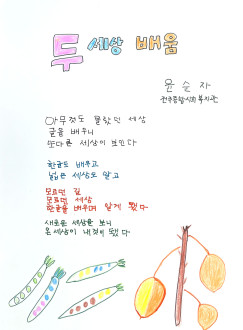 두 세상 배움
문순자
전주종합사회복지관
아무것도 몰랐던 세상
글을 배우니
또다른 세상이 보인다
한글도 배우고
넓은 세상도 알고
모르던 길
모르던 세상
한글을 배우며 알게 됐다
새로운 세상을 보니
온 세상이 내것이 됐다